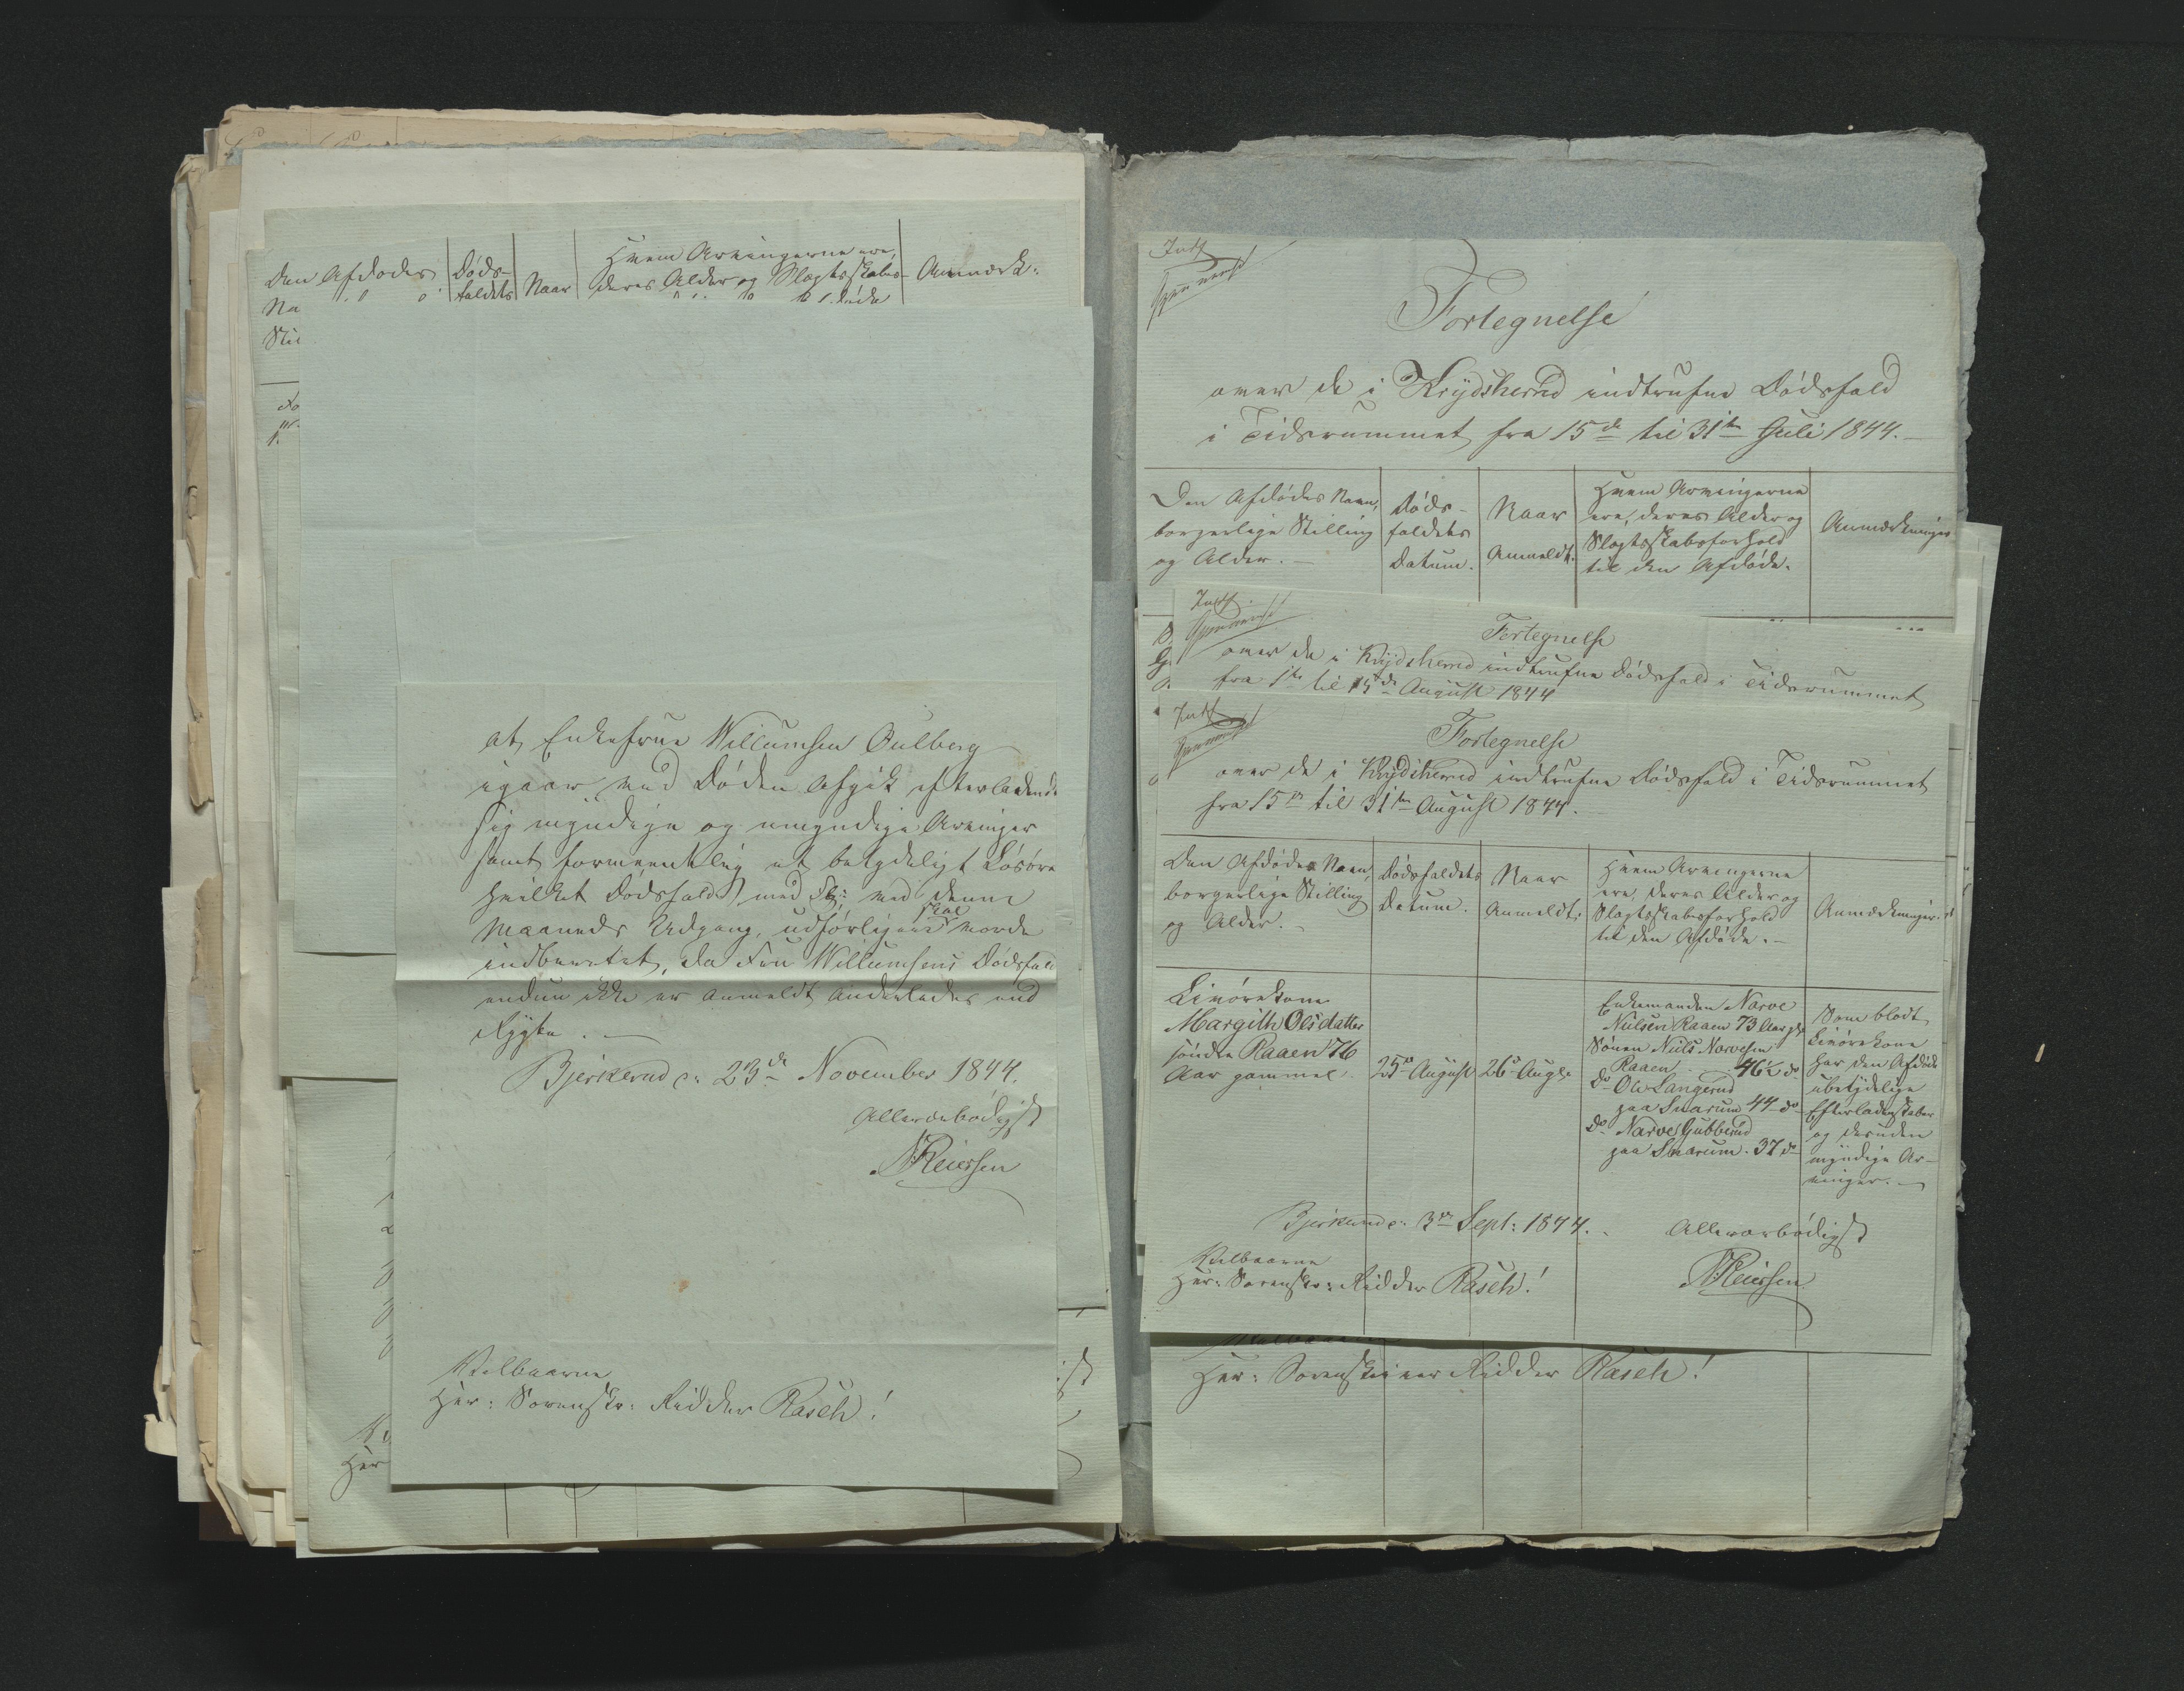 Den Afdødes
Døds-
faldets
Naar
Hvem Arvingerne ere,
deres Alder og Slægtskabs-
Anmærk:
Na
Stil
at Enkefrue Willumsen Gulberg
igaar ved Døden afgik efterladende
sig myndige og umyndige Arvinger
samt formeentlig et betydeligt Løsøre
hvilket Dødsfald, med Skj: ved denne
Maaneds Udgang, udførligere skal vorde
indberettet, da Fru Willumsens Dødsfald
endnu ikke er anmeldt anderledes end
Rygte. —
Bjerkerud d: 23de November 1844.
Allerærbødigst
NReiersen
Velbaarne
Herr: Sorenskr: Ridder Rasch!
Her
Indf
Fortegnelse
over de i Krydsherred indtrufne Dødsfald
i Tidsrummet fra 15de til 31te Juli 1844. —
Den Afdødes Navn,
borgerlige Stilling
og Alder. —
Døds-
faldets
Datum.
Naar
Anmeldt.
Hvem Arvingerne
ere, deres Alder og
Slægtskabsforhold
til den Afdøde.
Anmærkninger
Indf.
Fortegnelse
over de i Krydsherred indtrufne Dødsfald i Tidsrummet
fra 1te til 15de August 1844
Indf
Fortegnelse
over de i Krydsherred indtrufne Dødsfald i Tidsrummet
fra 15de til 31te August 1844.
Den Afdødes Navn,
borgerlige Stilling
og Alder. —
Dødsfaldets
Datum.
Naar
Anmeldt.
Hvem Arvingerne
ere, deres Alder og
Slægtskabsforhold
til den Afdøde. —
Anmærkninger.
Livørekone
Margith Olsdatter
søndre Raaen 76
Aar gammel.
25de August
26de Augs.
Enkemanden Narve
Nielsen Raaen 73 Aar gl
Sønnen Niels Narvesen
Raaen . . 46½ do
do Ole Langerud
paa Snarum 44 do
do Narve Gubberud
paa Snarum . 37 do
Som blodt
Livørekone
har den Afdøde
ubetydelige
Efterladenskaber
og desuden
myndige Ar-
vinger. —
Bjerkerud d: 3de Sept: 1844.
Allerærbødigst
NReiersen
Velbaarne
Herr: Sorenskr: Ridder Rasch!
Herr: Sorenskriver Ridder Rasch!